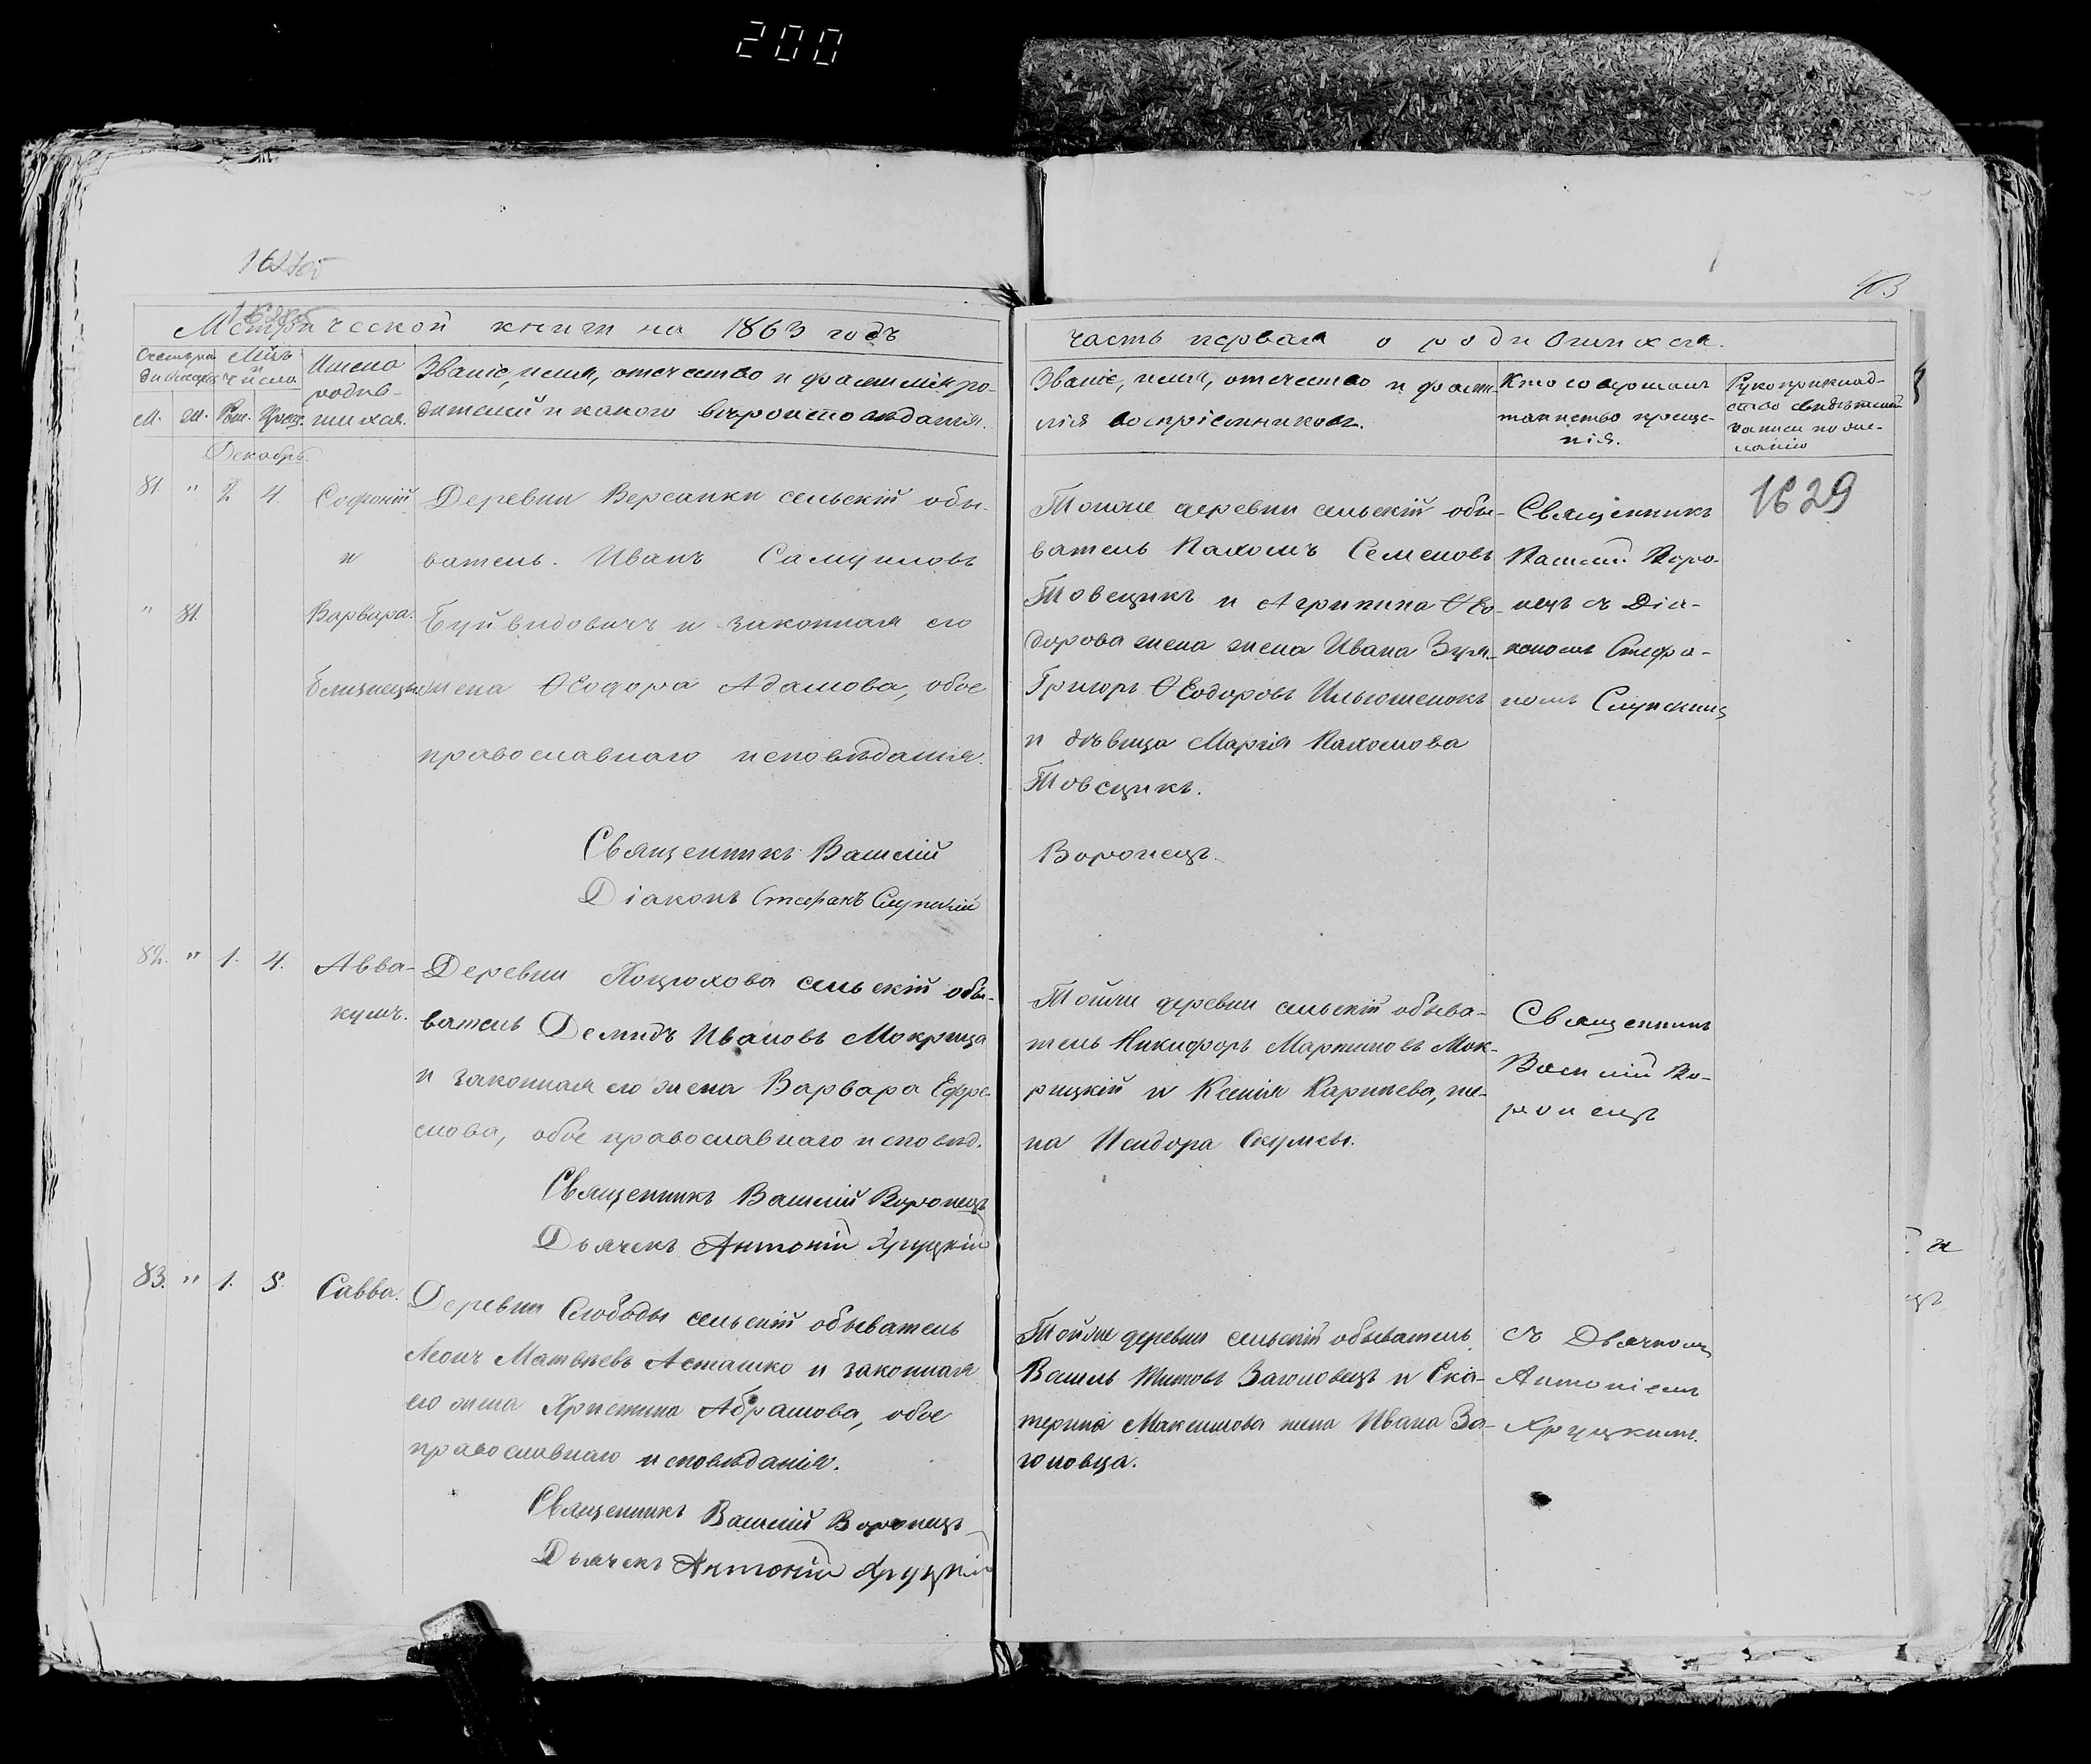 200
Метрической книги на 1863 годъ
часть первая о родившихся.
Мѣць
и
число.
Имена
родив-
шихся.
Званіе, имя, отечество и фамилія ро-
дителей и какого вѣроисповѣданія.
Званіе, имя, отечество и фами-
лія воспріемниковъ.
Кто совершалъ
таинство креще-
нія.
Рукоприклад-
ство свидѣтелей
записи по же-
ланію
М. Ж. Рож. Крещ.
Декабрь.
81. " 2 4. Софоній
и
" 81. Варвара.
близнецы
Деревни Версанки сельскій обы-
ватель. Иванъ Самуиловъ
Буйвидовичъ и законная его
жена Ѳеодора Адамова, обое
православнаго исповѣданія.
Священникъ Василій
Діаконъ Стефанъ Слупскій
Тойже деревни сельскій обы-
ватель Пахомъ Семеновъ
Товсцикъ и Агрипина Ѳео-
дорова жена жена Ивана
Григоръ Ѳеодоровъ Ильюшенокъ
и дѣвица Марія Пахомова
Товсцикъ.
Воронецъ.
Священникъ
Василій Воро-
нецъ съ Діа-
кономъ Стефа-
номъ Слупскимъ
1629
82. " 1. 4. Авва-
кумъ.
Деревни Коцюхова сельскій обы-
ватель Демидъ Ивановъ Мокрица
и законная его жена Варвара Ефре-
мова, обое православнаго исповѣд.
Священникъ Василій Воронецъ
Дьячекъ Антоній Хруцкій
Тойже деревни сельскій обыва-
тель Никифоръ Мартиновъ Мок-
рицкій и Ксенія Карпиева, же-
на Исидора
Священникъ
Василій Во-
ронецъ
83. " 1. 5. Савва.
Деревни Слободы сельскій обыватель
Леонъ Матвѣевъ Асташко и законная
его жена Христина Абрамова, обое
православнаго исповѣданія.
Священникъ Василій Воронецъ
Дьячекъ Антоній Хруцкій
Тойже деревни сельскій обыватель
Василь Титовъ Заголовецъ и Ека-
терина Максимова жена Ивана За-
головца.
съ Дьячкомъ
Антоніемъ
Хруцкимъ.